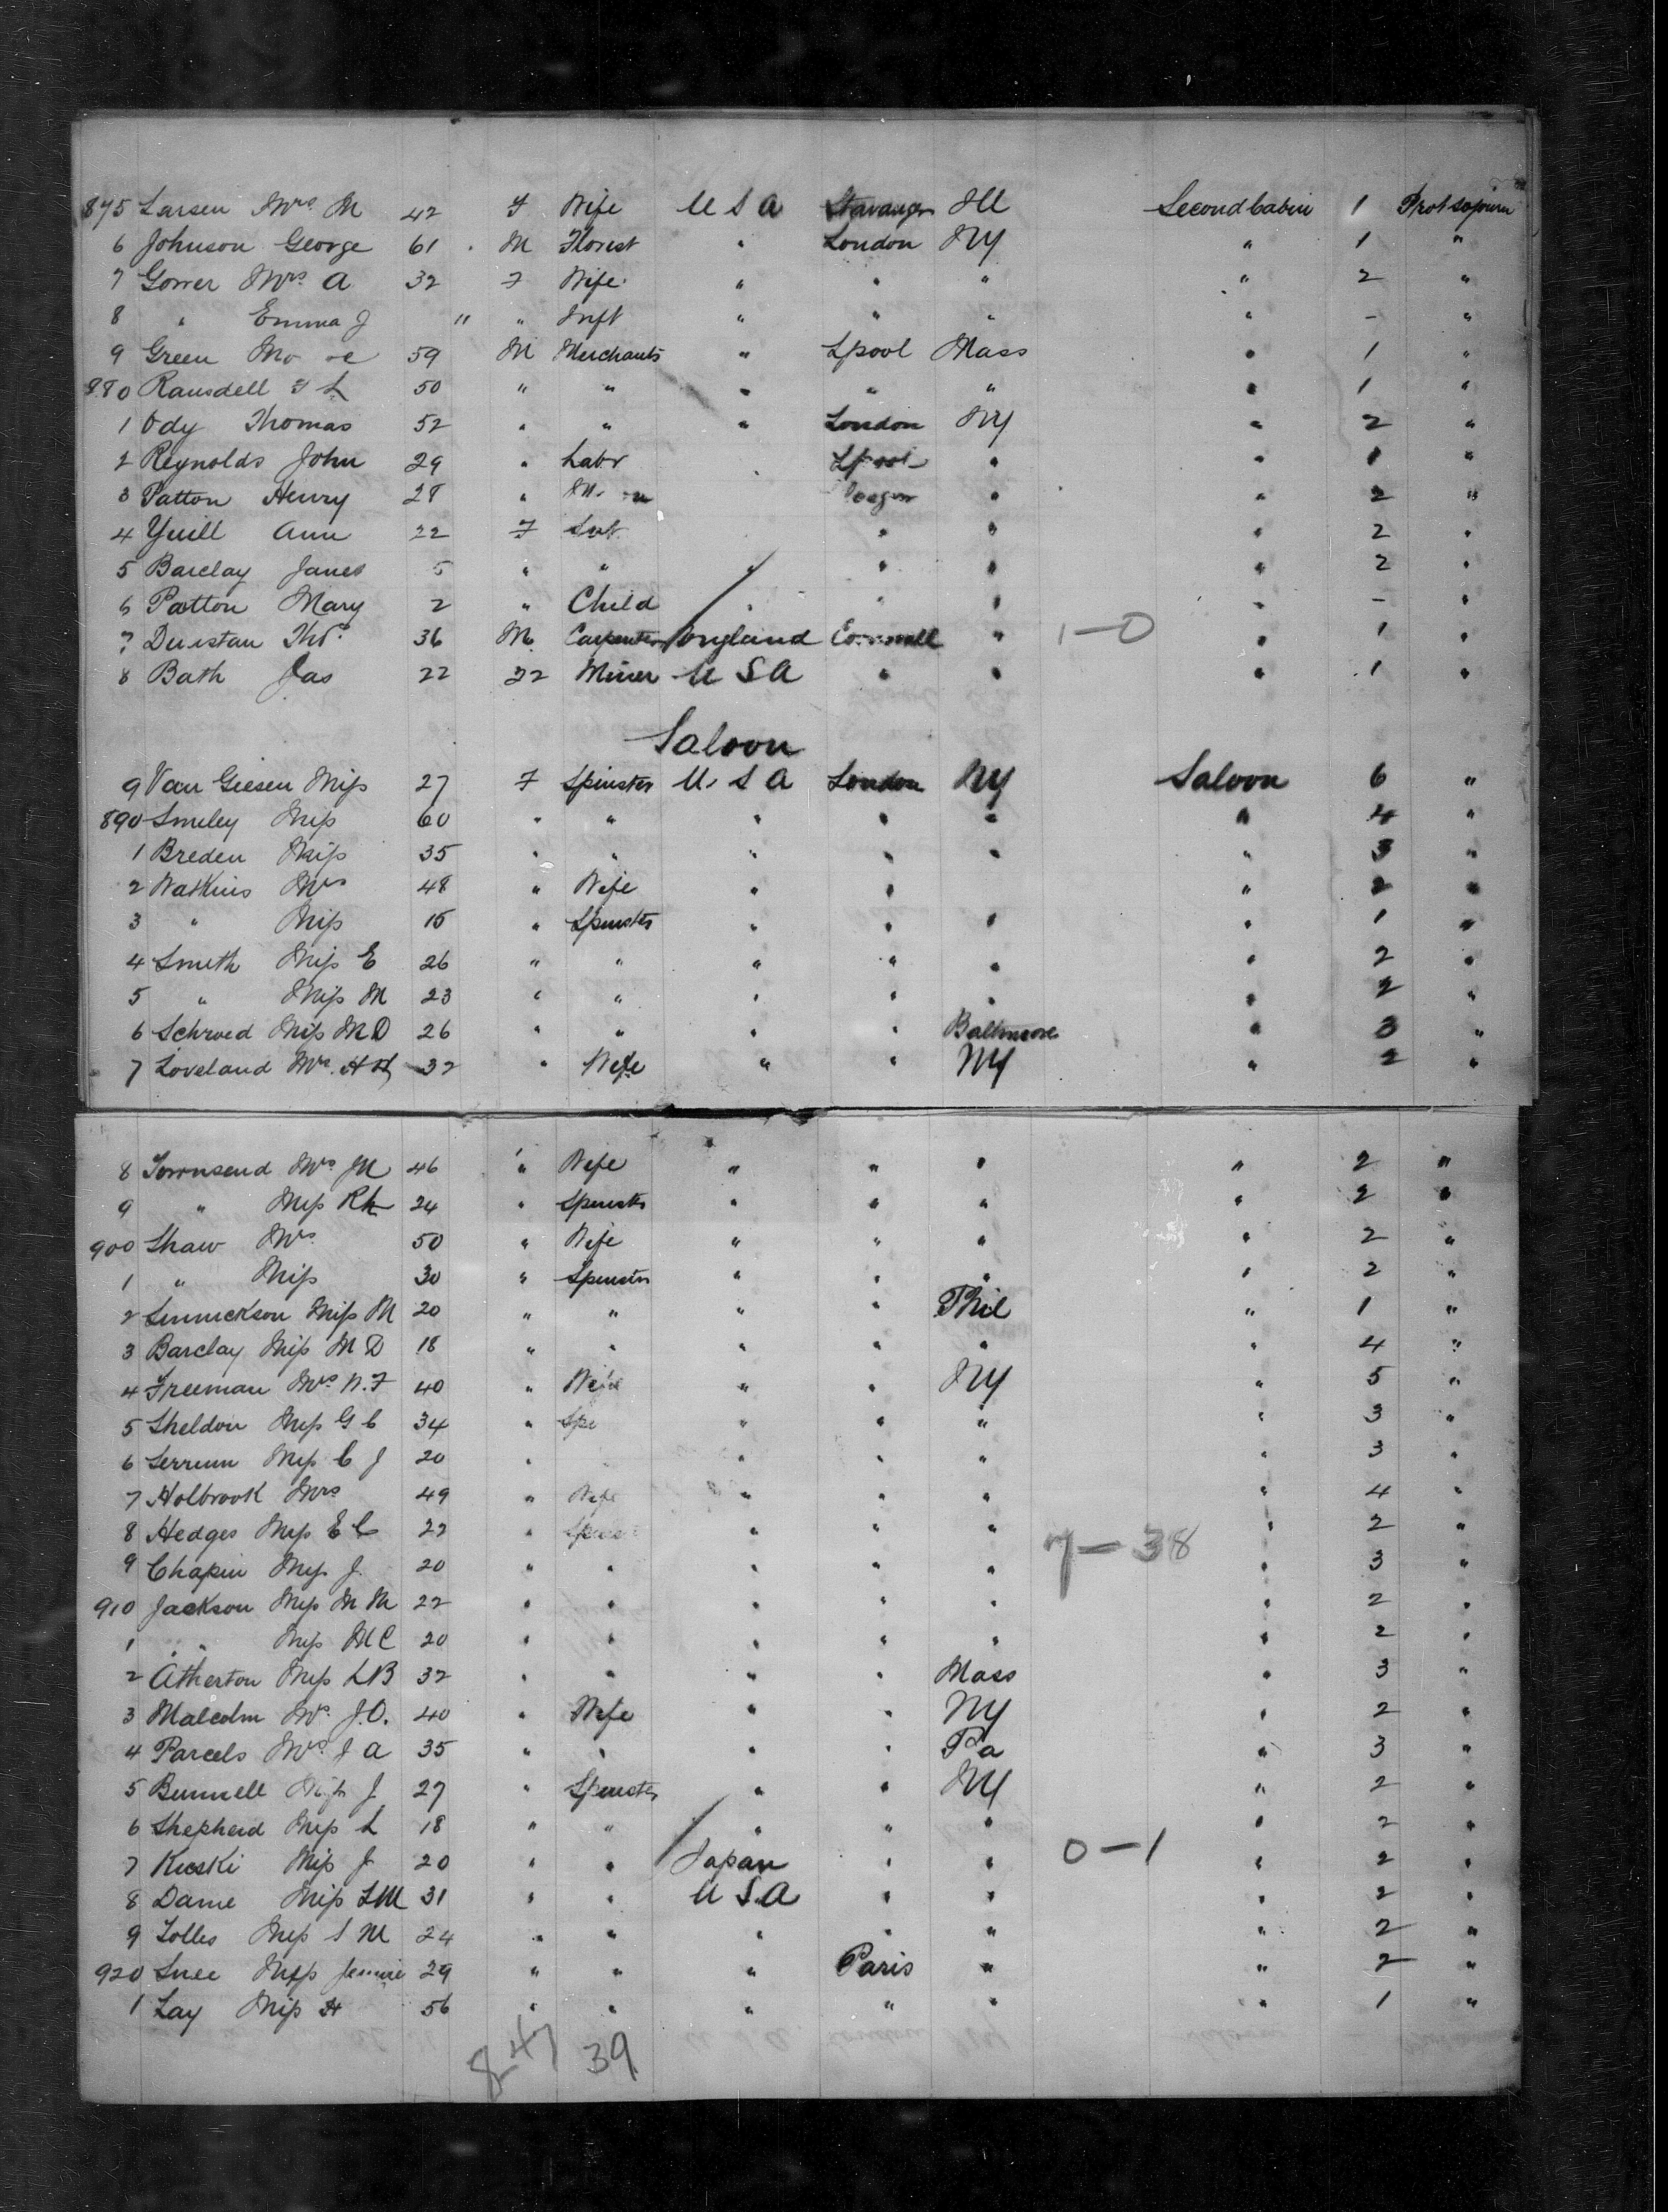 875 Larsen Mrs M 42 F Wife U S A Stavanger Ill Second Cabin 1 Prot sojourn
6 Johnson George 61 . M Florist " London NY " 1 "
7 Gower Mrs A 32 F Wife " " " " 2 "
8 " Emma J " " Inft " " " " - "
9 Green 59 M Merchants " Lpool Mass " 1 "
880 Ransdell F L 50 " " " " " " 1 "
1 Ody Thomas 52 " " " London NY " 2 "
2 Reynolds John 29 " Labr Lpool " " 1 "
3 Patton Henry 28 " " " 2 "
4 Yuill Ann 22 F Svt " " " 2 "
5 Barclay Janet 5 " " " " " " 2 "
6 Patton Mary 2 " Child " " " " - "
7 Dunstan Thos 36 M Carpenter England Cornwall " 1-0 " 1 "
8 Bath Jas 22 22 Miner U S A " " " 1 "
Saloon
9 Van Giesen Miss 27 F Spinster U. S A London NY Saloon 6 "
890 Smiley Miss 60 " " " " " " 4 "
1 Breden Miss 35 " " " " " " 3 "
2 Watkins Mrs 48 " Wife " " " 2 "
3 " Miss 15 " Spinster " " " " 1 "
4 Smith Miss E 26 " " " " " " 2 "
5 " Miss M 23 " " " " " " 2 "
6 Schroed Miss M D 26 " " " " Baltimore " 3 "
7 Loveland Mrs. H H 32 " Wife " " NY " 2 "
8 Townsend Mrs M 46 " Wife " " " " 2 "
9 " Miss 24 " Spinster " " " " 2 "
900 Shaw Mrs 50 " Wife " " " " 2 "
1 " Miss 30 " Spinster " " " " 2 "
2 Sinnickson Miss M 20 " " " " Phil " 1 "
3 Barclay Miss M D 18 " " " " " " 4 "
4 Freeman Mrs W. F 40 " Wife " " NY " 5 "
5 Sheldon Miss G C 34 " Spi " " " " 3 "
6 Miss C J 20 " " " " " 3 "
7 Holbrook Mrs 49 " Wife " " " " 4 "
8 Hedges Miss E C 22 " " " " 7-38 " 2 "
9 Chapin Miss J. 20 " " " " " " 3 "
910 Jackson Miss M M 22 " " " " " " 2 "
1 " Miss M C 20 " " " " " " 2 "
2 Atherton Miss L B 32 " " " " Mass " 3 "
3 Malcolm Mrs. J. O. 40 " Wife " " NY " 2 "
4 Parcels Mrs J A 35 " " " " Pa " 3 "
5 Bunnell Miss J 27 " Spinster " " NY " 2 "
6 Shepherd Miss L 18 " " " " " " 2 "
7 Miss J 20 " " Japan " " 0-1 " 2 "
8 Dame Miss L M 31 " " U S. A " " " 2 "
9 Tolles Miss S M 24 " " " " " " 2 "
920 Snee Miss Jennie 29 " " " Paris " " 2 "
1 Lay Miss H 56 " " " " " " 1 "
8-47 39